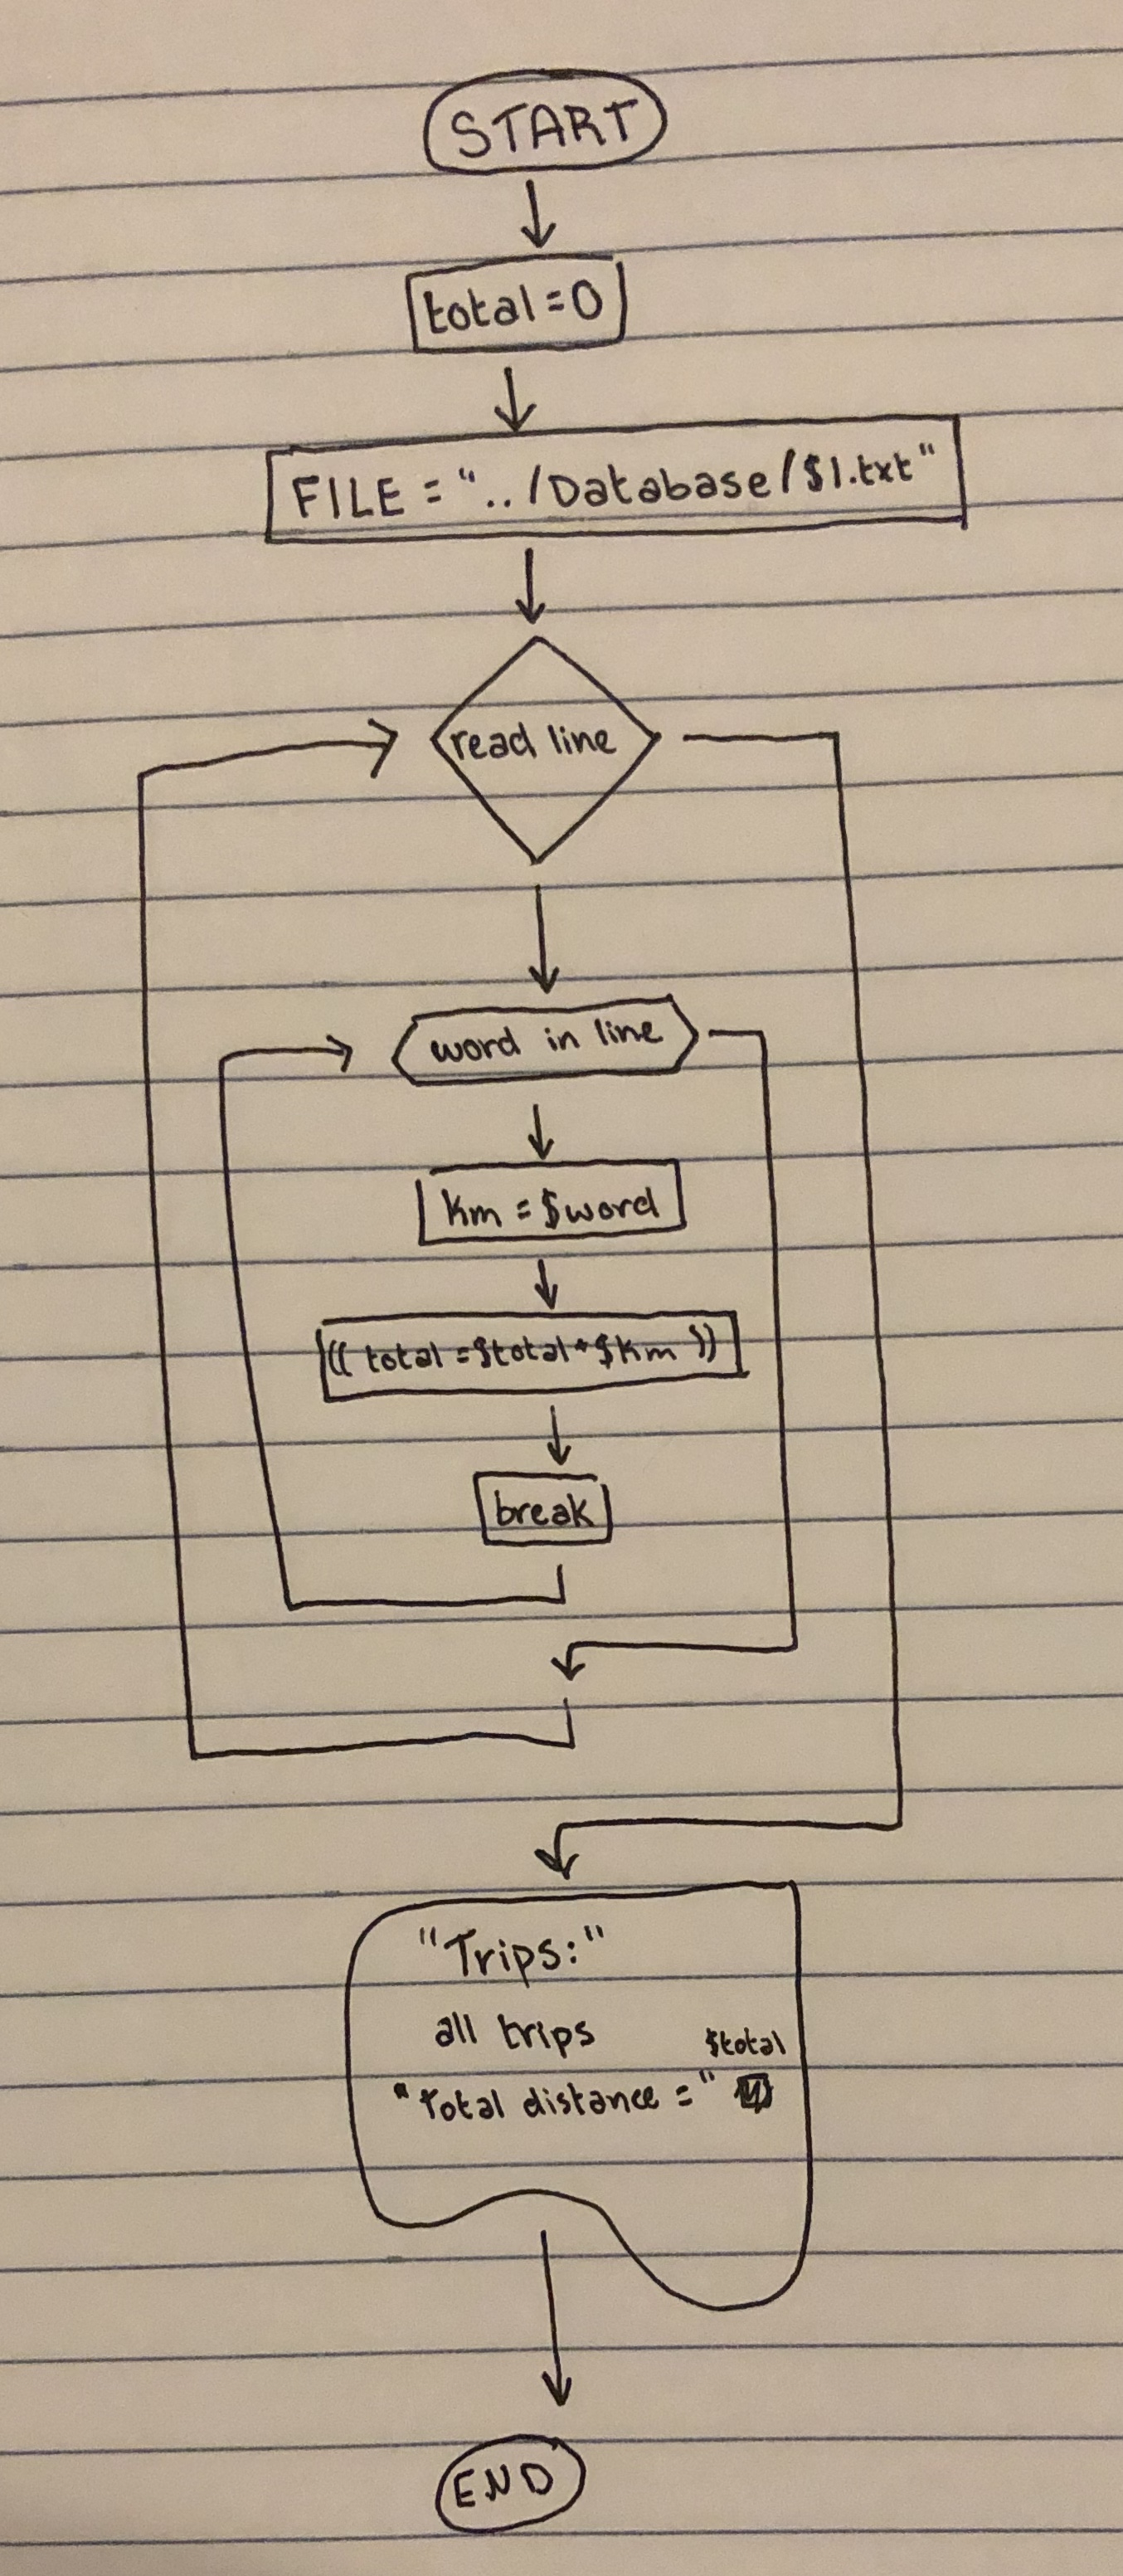 START
total=0
FILE = "../Database/$1.txt"
read line
word in line
km = $word
(( total =$total+$km ))
break
"Trips:"
all trips
$total
"Total distance ="
END